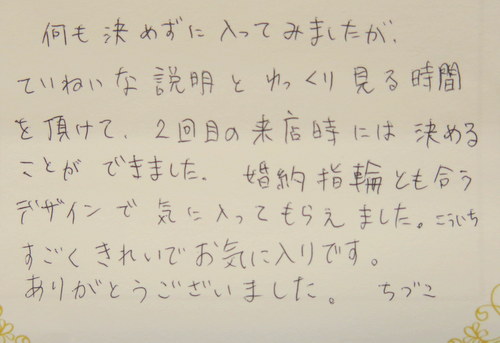 何も決めずに入ってみましたが、
ていねいな説明とゆっくり見る時間
を頂けて、2回目の来店時には決める
ことができました。 婚約指輪とも合う
デザインで気に入ってもらえました。こういち
すごくきれいでお気に入りです。
ありがとうございました。 ちづこ